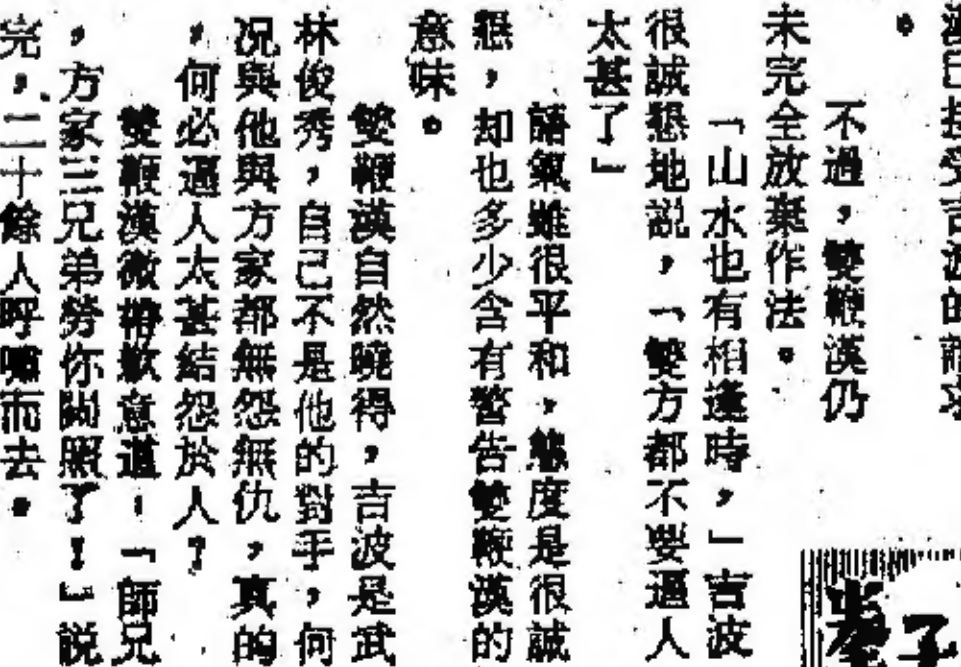 漢已接受吉波的
。
不過，雙鞭漢仍
未完全放棄作法。
「山水也有相逢時，」吉波
很誠懇地説，「雙方都不要逼人
太甚了」
語氣雖很平和，態度是很誠
懇，却也多少含有警告雙鞭漢的
意味。
雙鞭漢自然曉得，吉波是武
林俊秀，自己不是他的對手，何
况與他與方家都無怨無仇，真的
，何必逼人太甚結怨於人？
雙鞭漢微帶歉意道：「師兄
，方家三兄弟勞你關照了！」説
完，二十餘人呼嘯而去。